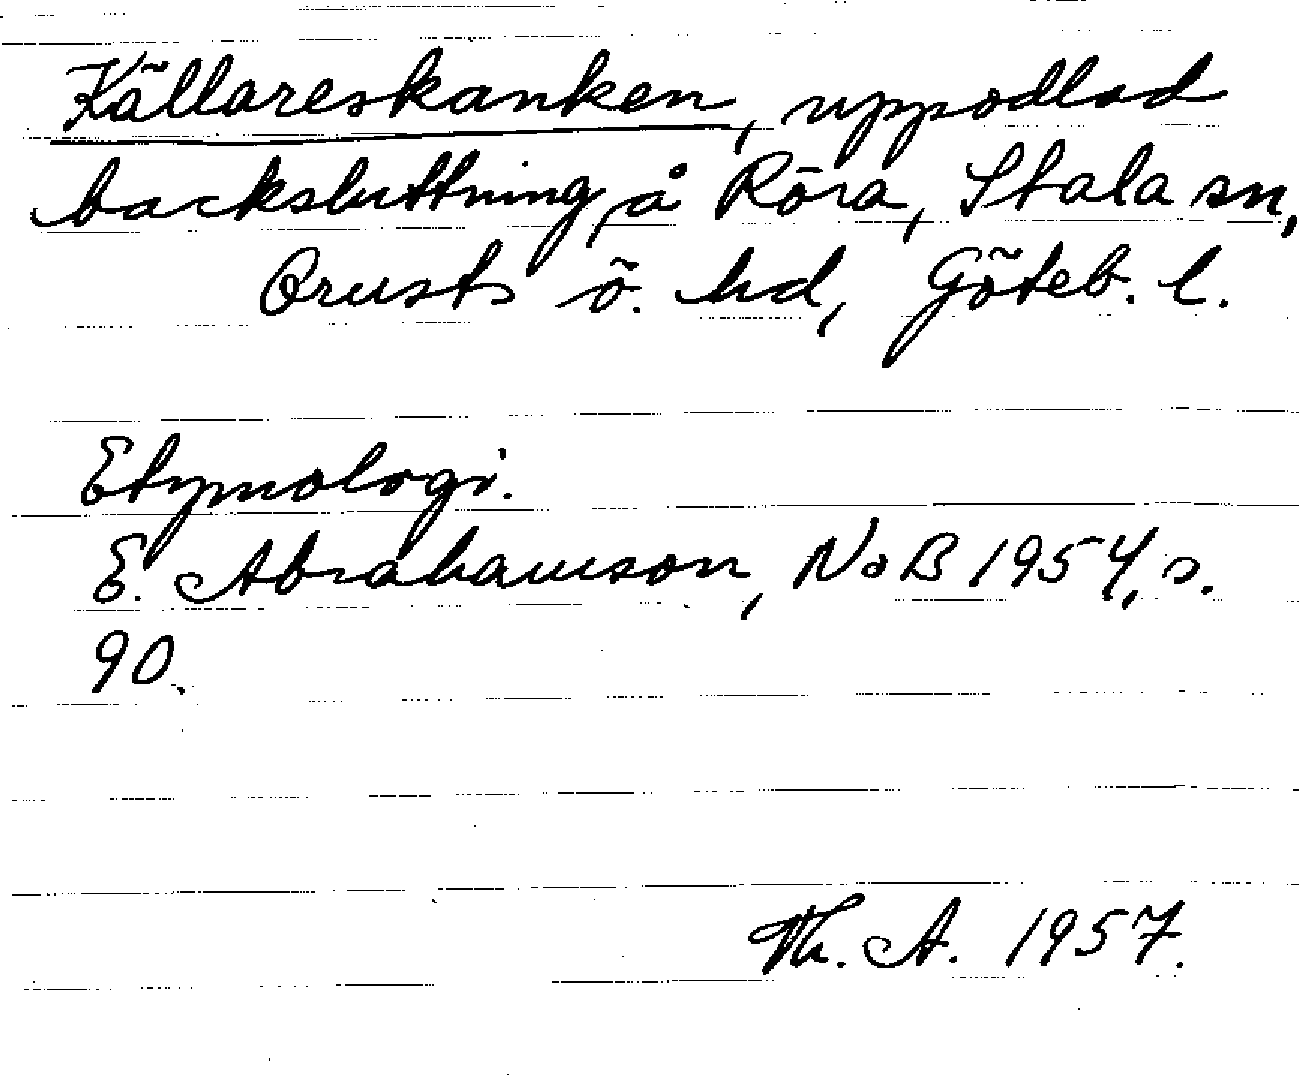 Källareskanken, uppodlad
backsluttning å Röra, Stala sn,
Orusts ö. hd, Göteb. l.
Etymologi.
E. Abrahamson, NoB 1954, s.
90.
Th. A. 1957.